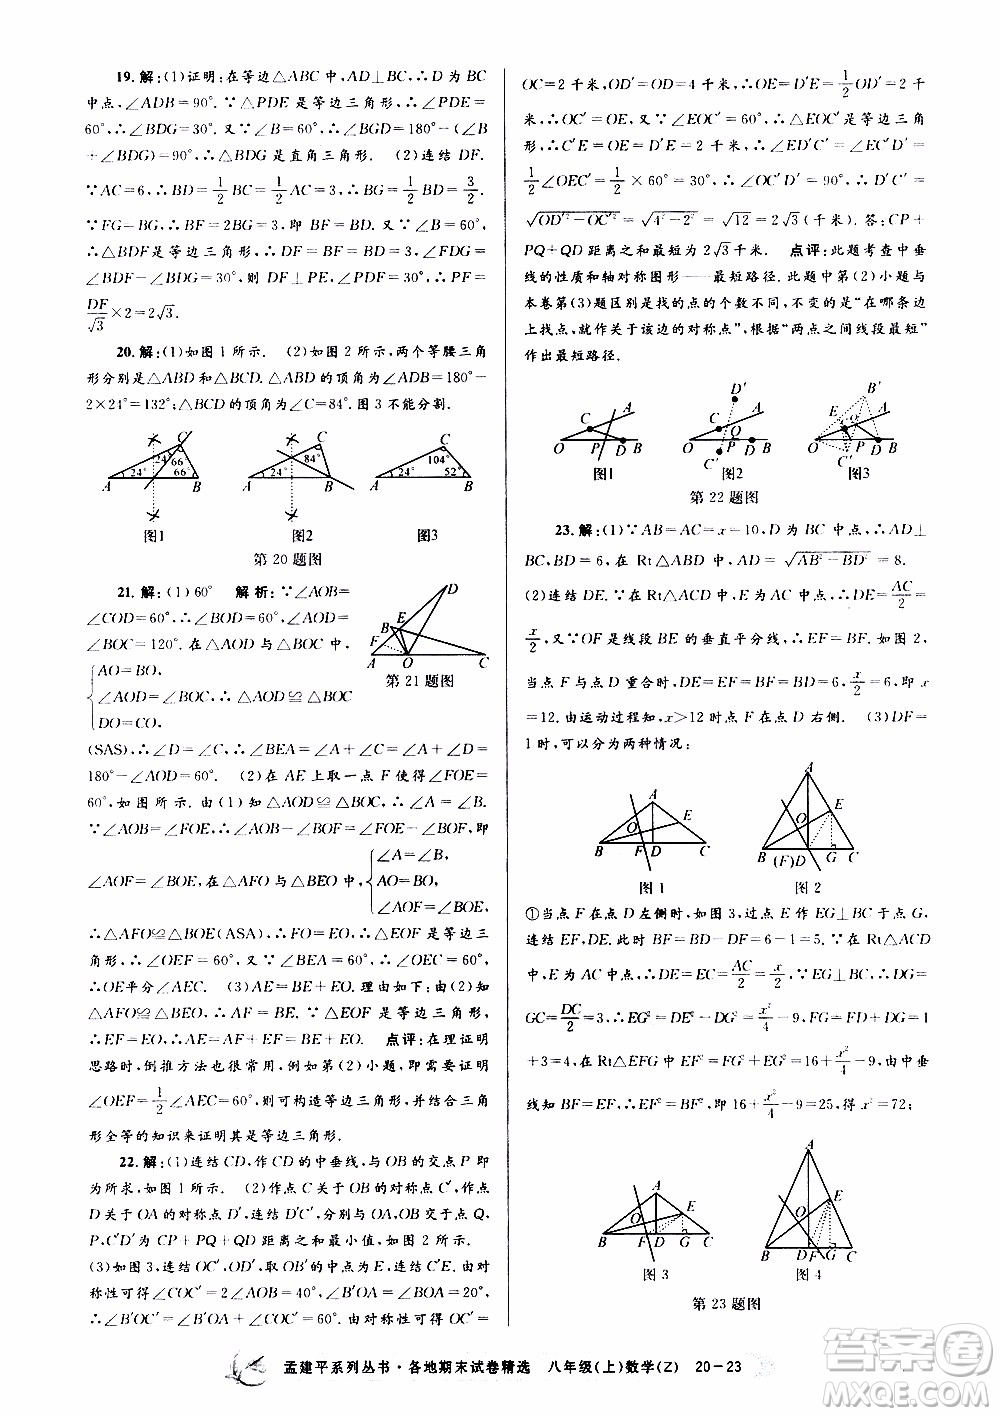 19. 解:(1)证明:在等边△ABC 中,AD⊥BC,∴D 为 BC
中点,∠ADB=90°.∵△PDE 是等边三角形,∴∠PDE=
60°,∴∠BDG=30°.又∵∠B=60°,∴∠BGD=180°-(∠B
+∠BDG)=90°,∴△BDG 是直角三角形. (2)连结 DF.
∵AC=6,∴BD=1/2 BC=1/2 AC=3,∴BG=1/2 BD=3/2.
∵FG=BG,∴BF=2BG=3,∴BF=BD.又∵∠B=60°,
∴△BDF 是等边三角形,∴∠BDF=60°,∴∠FDG=
∠BDF-∠BDG=30°,则 DF⊥PD,∠PDF=90°,∴PF=
DF/√3×2=2√3.
20. 解:(1)如图 1 所示. (2)如图 2 所示,两个等腰三角
形分别是△ABD和△BCD.△ABD 的顶角为∠ADB=180°-
2×24°=132°;△BCD 的顶角为∠C=84°.图 3 不能分割.
C 24° 66° 24° 66° A B
84° 24° A B
104° 24° 52° A B
图1 图2 图3
第 20 题图
21. 解:(1)60° 解析:∵∠AOB=
∠COD=60°,∴∠BOD=60°,∴∠AOD=
∠BOC=120°.在△AOD 与△BOC 中,
{AO=BO,
∠AOD=∠BOC,∴△AOD≌△BOC
DO=CO,
D B E F A O C
第 21 题图
(SAS),∴∠D=∠C,∴∠BEA=∠A+∠C=∠A+∠D=
180°-∠AOD=60°. (2)在 AE 上取一点 F 使得∠FOE=
60°,如图所示.由(1)知△AOD≌△BOC,∴∠A=∠B.
∵∠AOB=∠FOE,∴∠AOB-∠BOF=∠FOE-∠BOF,即
∠AOF=∠BOE,在△AFO 与△BEO 中,{∠A=∠B,
AO=BO,
∠AOF=∠BOE,
∴△AFO≌△BEO(ASA),∴FO=EO,∴△OEF 是等边三角
形,∴∠OEF=60°,∵∠BEA=60°,∴∠OEC=60°,
∴OE平分∠AEC. (3)AE=BE+EO.理由如下:由(2)知
△AFO≌△BEO,∴AF=BE.∵△EOF 是等边三角形,
∴EF=EO,∴AE=AF+EF=BE+EO. 点评:在理证明
思路时,倒推方法也很重要.例如第(2)小题,最终要证
∠OEF=1/2∠AEC=60°,可构造等边三角形,再用三角
形全等的知识来证明其是等边三角形.
22. 解:(1)连结 CD,作 CD 的中垂线,与 OB 的交点 P 即
为所求,如图 1 所示. (2)作点 C 关于 OB 的对称点 C′,作点
D 关于 OA 的对称点 D′,连结 C′D′,分别与 OA,OB 交于点 Q,
P,则此时 CP+PQ+QD 距离之和最小值,如图 2 所示.
(3)如图 3,连结 OB′,OC′,OD′,C′E,C′D′,由对
称性可得∠COC′=2∠AOB=40°,∠B′OA=∠BOA=20°,
∴∠B′OC′=∠B′OA+∠COC′=60°,由对称性可得
OC=2 千米,OD′=OD=4 千米,∴OE=D′E=1/2 OD′=2 千
米,∴OC′=OE,又∵∠EOC′=60°,∴△EOC′是等边三角
形,∴C′E=OE=D′E,∠OEC′=60°,∴∠OD′C′=
1/2∠OEC′=1/2×60°=30°,∴∠OC′D′=90°,∴C′D′=
√OD′²-OC′²=√4²-2²=√12=2√3(千米).答:CP+
PQ+QD 距离之和最短为 2√3千米. 点评:此题考查中垂
线的性质和轴对称图形——最短路径.此题第(2)小题与
本卷第(3)题区别是找的点的个数不同,不管怎样,在哪条边
上找点,就作关于该边的对称点",根据"两点之间线段最短"
作出最短路径.
C A O P D B
D′ C A Q O P D B C′
B′ E A C O D B C′
图1 图2 图3
第 22 题图
23. 解:(1)∵AB=AC=x=10,D 为 BC 中点,∴AD⊥
BC,BD=6,在 Rt△ABD 中,AD=√AB²-BD²=8.
(2)连结 DE.∵在Rt△ACD 中,E为 AC 中点,∴DE=AC/2=
x/2,又∵OF是线段 BE 的垂直平分线,∴EF=BF,如图 2,
当点 F与点D 重合时,DE=EF=BF=BD=6,x/2=6,即 x
=12.由运动过程知,x>12 时点 F 在点 D 右侧. (3)DF=
1时,可以分为两种情况:
A O E B F D C
A O E B (F)D G C
图 1 图 2
①当点 F 在点 D 左侧时,如图 3,过点 E 作 EG⊥BC 于点 G,
连结 EF,DE.此时 BF=BD-DF=6-1=5.∵在 Rt△ACD
中,E 为 AC 中点,∴DE=EC=AC/2=x/2,又∵EG⊥BC,∴DG=
GC=DC/2=3,∴EG²=DE²-DG²=x²/4-9,FG=DF+DG=1
+3=4.在 Rt△EFG 中,EF²=FG²+EG²=16+x²/4-9,由中垂
线知 BF=EF,∴BF²=EF²,即 16+x²/4-9=25,得 x²=72;
A O E B F D G C
A O E B D F G C
图 3 图 4
第 23 题图
孟建平系列丛书·各地期末试卷精选 八年级(上)数学(Z) 20-23